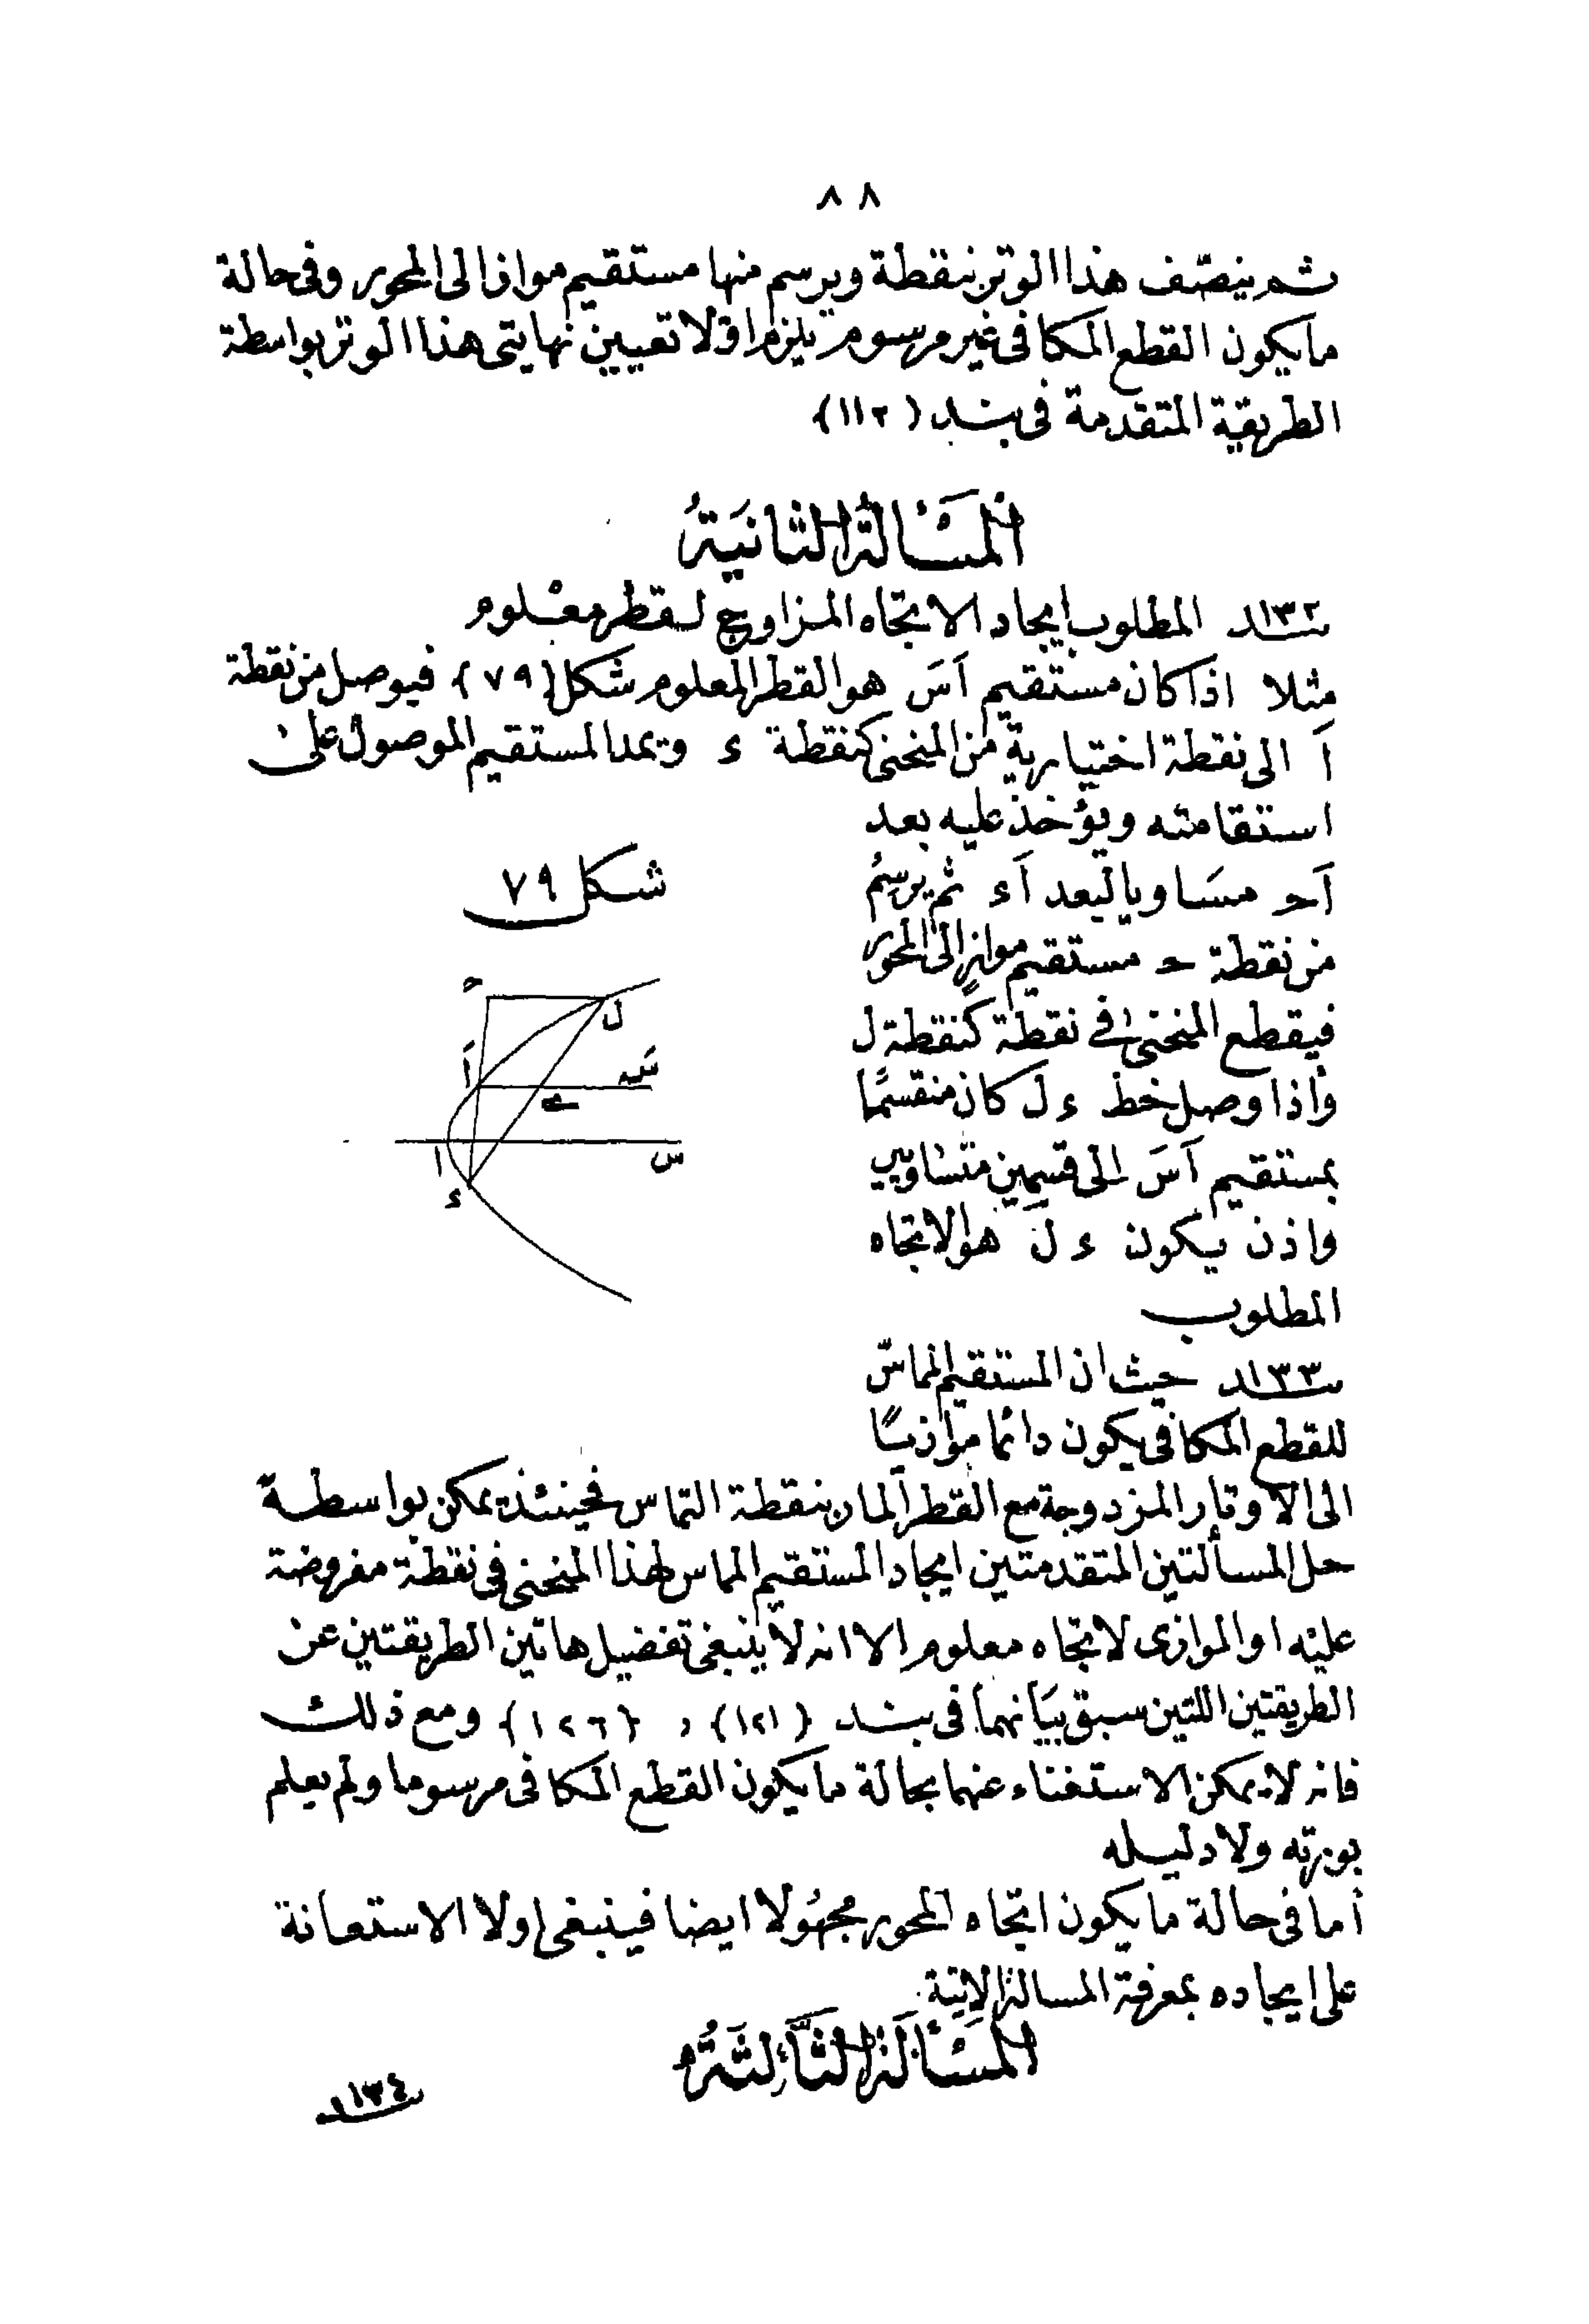 ٨٨
ثم ينصّف هذا الوتر بنقطة ويرسم منها مستقيم مواز الى المحور وفى حالة
ما يكون القطع المكافى غير مرسوم يلزم اوّلا تعيين نهايتى هذا الوتر بواسطة
الطريقة المتقدمة فى بند (١١٢)
المسألة الثانية
بند ١٣٢ المطلوب ايجاد الاتجاه المزاوج لقطر معلوم
مثلا اذا كان مستقيم اَسَ هو القطر المعلوم شكل (٧٩) فيوصل من نقطة
اَ الى نقطة اختيارية من المنحنى كنقطة ء ويمد المستقيم الموصول على
استقامته ويؤخذ عليه بعد
اَحـ مساويا لبعد اَء ثم يرسم
من نقطة حـ مستقيم موازٍ الى المحور
فيقطع المنحنى فى نقطة كنقطة ل
واذا وصل خط ء ل كان منقسمًا
بمستقيم اَسَ الى قسمين متساويين
واذن يكون ء ل هو الاتجاه
المطلوب
شكل ٧٩
حـ
ل
اَ
سَ
ا
س
ء
بند ١٣٣ حيث ان المستقيم المماسّ
للقطع المكافى يكون دائما موازيًا
الى الاوتار المزدوجة مع القطر المار بنقطة التماس فحينئذ يمكن بواسطة
حل المسألتين المتقدمتين ايجاد المستقيم المماس لهذا المنحنى فى نقطة مفروضة
عليه او الموازى لاتجاه معلوم الا انه لا ينبغى تفضيل هاتين الطريقتين عن
الطريقتين اللتين سبق بيانهما فى بند (١٢١) و (١٢٦) ومع ذلك
فانه لا يمكن الاستغناء عنهما بحالة ما يكون القطع المكافى مرسوما ولم يعلم
بورته ولا دليله
أما فى حالة ما يكون اتجاه المحور مجهولا ايضا فينبغى اولا الاستعانة
على ايجاده بمعرفة المسالة الاتية
المسألة الثالثة
بند ١٣٤